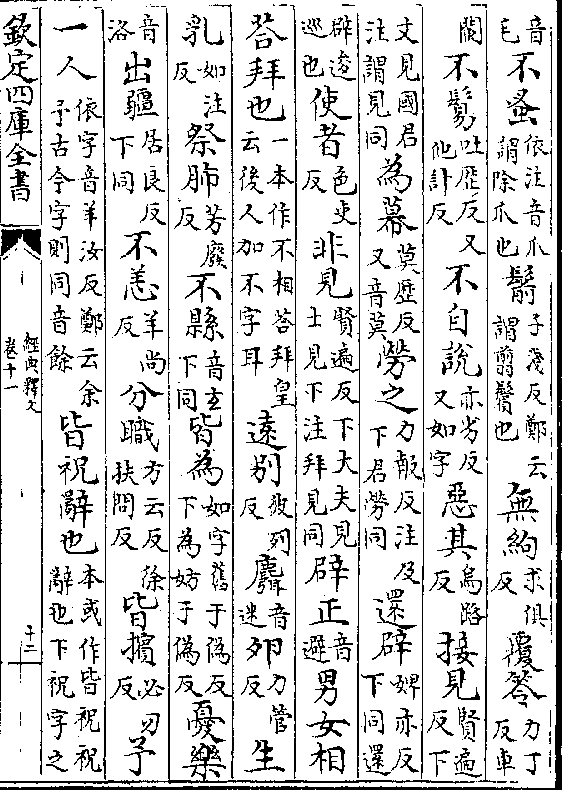 音毛不蚤依注音爪謂除爪也鬋子淺反鄭云謂翦鬢也無絇求俱反覆笭力丁反車
闌不鬄吐歴反又他計反不自說亦劣反又如字惡其烏路反接見賢遍反下
文見國君注謂見同為幕莫歴反又音莫勞之力報反注及下君勞同還辟婢亦反下同還
辟逡巡也使者色吏反非見賢遍反下大夫見士見下注拜見同辟正音避男女相
荅拜也一本作不相荅拜皇云後人加不字耳逺别彼列反麛音迷夘力管反生
乳如注反祭肺芳廢反不縣音玄下同皆為如字舊于偽反下為妨于偽反憂樂
音洛出疆居良反下同不恙羊尚反分職方云反徐扶問反皆擯必刃反予
一人依字音羊汝反鄭云余予古今字則同音餘皆祝辭也本或作皆祝祝辭也下祝字之
欽定四庫全書
經典釋文
卷十一
十二